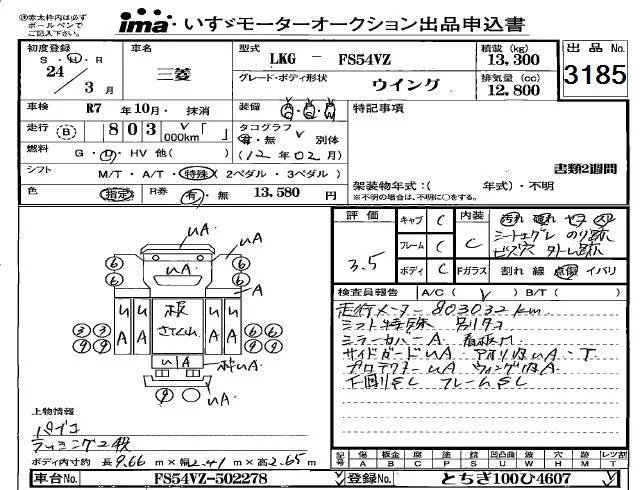 ※赤太枠内は必ず
ボールペンで
ご記入下さい。
ima・いすゞモーターオークション出品申込書
初度登録
S・H・R
24
3月
車名
三菱
型式
LKG － FS54VZ
グレード・ボディ形状
ウイング
積載 (kg)
13,300
排気量 (cc)
12,800
出品No.
3185
車検 R7年10月・抹消
装備 A/C P/S P/W
特記事項
走行 B 803,000km
タコグラフ
有・無 別体
(12年02月)
燃料 G・D・HV 他( )
シフト M/T・A/T・特殊(2ペダル・3ペダル)
書類2週間
架装物年式:( 年式)・不明
※不明の場合は、不明に○をする。
色 指定 R券 有・無 13,580円
評価
3.5
キャブ C
フレーム C
ボディ C
内装
C
汚れ
シートエグレ のり跡
ビス穴
Fガラス 割れ 線 点傷 イバリ
検査員報告 A/C( ) B/T( )
走行メーター803032km
ミット特殊 別タコ
ミラーカバーA 看板穴
サイドガードUA アオリ内UA・T
プロテクターUA ウィング内A
下回りSC フレームSC
UA
UA
UA
A
UA
UA
板
さてくれ
枠UA
UA
上物情報
パブコ
ラッシング2段
ボディ内寸約 長9.66m×幅2.41m×高2.65m
記号
傷 A
板金 B
腐 C
塗 P
錆 S
凹凸曲 U
波 W
穴 H
跡 M
ﾒｸﾚ T
レツ割 R
車台No. FS54VZ-502278
登録No. とちぎ100ひ4607